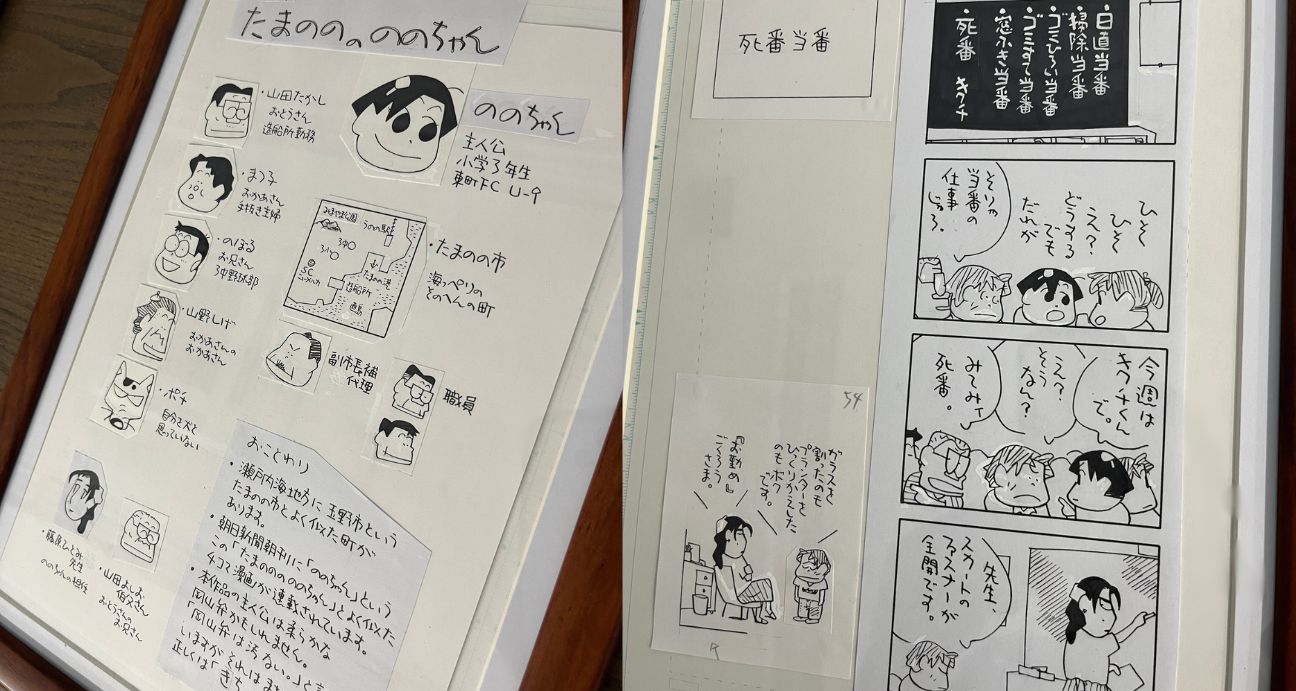 たまのの。ののちゃん
・山田たかし
おとうさん
造船所勤務
ののちゃん
主人公
小学3年生
東町FC U-9
・まつ子
おかあさん
手抜き主婦
・のぼる
お兄さん
3中野球部
うのの駅
たまのの港
造船所
3中
3小
SC
・たまのの市
海っぺりの
そのへんの町
・山野しげ
おかあさんの
おかあさん
副市長補
代理
職員
・ポチ
自分を犬と
思っていない
・藤原ひとみ
先生
ののちゃんの担任
・山田よしお
伯父さん
おとうさんの
お兄さん
おことわり
・瀬戸内海地方に玉野市という
たまのの市とよく似た町が
あります。
・朝日新聞朝刊に「ののちゃん」という
この「たまののののちゃん」とよく似た
4コマ漫画が連載されています。
・本作品の主人公は柔らかな
岡山弁かもしれません。
「岡山弁は汚ない。」と言
いますがそれはまち
正しくは「きち
死番当番
・日直当番
・掃除当番
・ゴミひろい当番
・ゴミすて当番
・窓ふき当番
・死番 キクチ
ひそ
ひそ
え?
どうする
でも
だれが
そりゃ
当番の
仕事
じゃろ。
今週は
キクチくん
で。
え?
そう
なん?
みてみィ
死番。
先生、
スカートの
ファスナーが
全開です。
54
ガラスを
割ったのも
プランターを
ひっくりかえした
のもボク
です。
『お勤め』
ごくろう
さま。